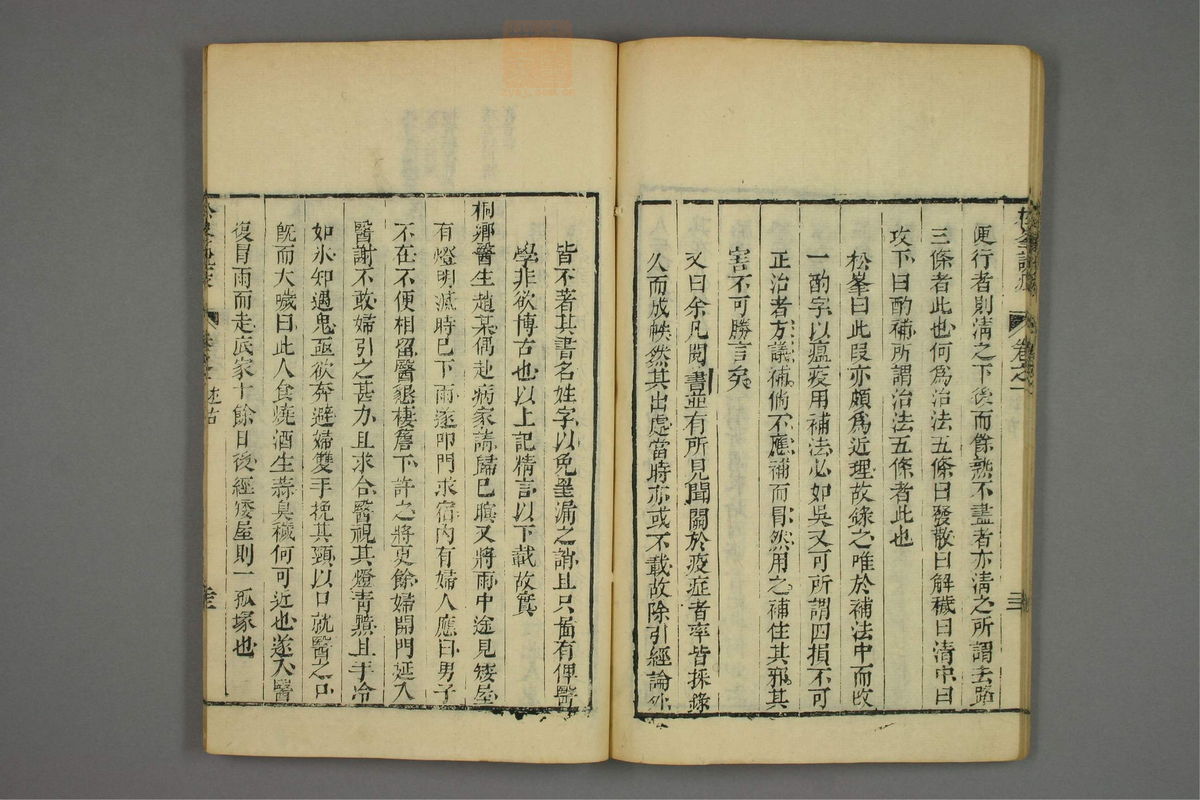 便行者則清之下後而餘熱不盡者亦清之所謂去路
三條者此也何爲治法五條曰發散曰解穢曰清中曰
攻下曰酌補所謂治法五條者此也
松峯曰此段亦頗爲近理故錄之唯於補法中而改
一酌字以瘟疫用補法必如吳又可所謂四損不可
正治者方議補倘不應補而冒然用之補住其邪其
害不可勝言矣
又曰余凡閱書並有所見聞關於疫症者率皆採錄
久而成帙然其出處當時亦或不載故除引經論外
皆不著其書名姓字以免罣漏之誚且只啚有俾醫
學非欲博古也以上記精言以下載故實
桐鄉醫生趙某偶赴病家請歸已瞑又將雨中途見矮屋
有燈明滅時已下雨遂叩門求宿內有婦人應曰男子
不在不便相留醫懇棲簷下許之將更餘婦開門延入
醫謝不敢婦引之甚力且求合醫視其燈靑黯且手冷
如氷知遇鬼亟欲奔避婦雙手挽其頸以口就醫之口
旣而大噦曰此人食燒酒生蒜臭穢何可近也遂入醫
復冒雨而走底家十餘日後經矮屋則一孤塚也
卷之一
述古